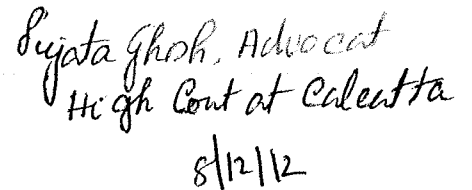 Sujata Ghosh, Advocat
High Court at Calcutta
8/12/12